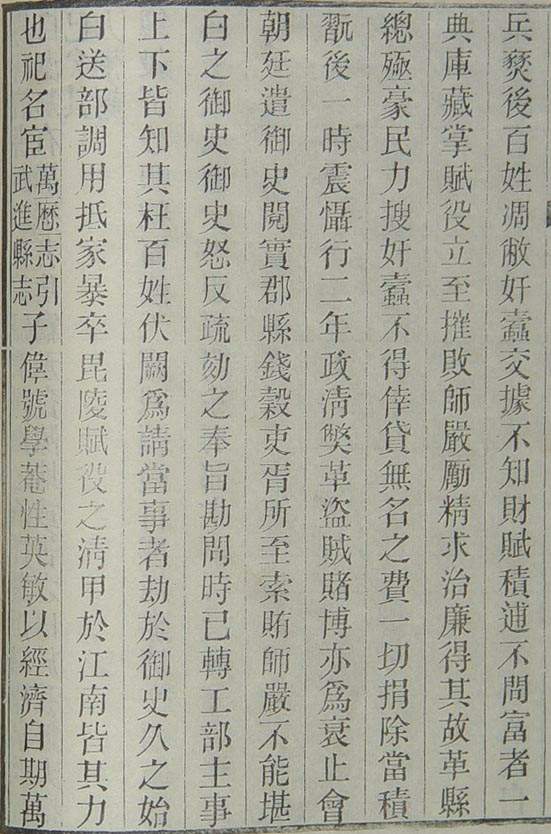 兵燹後百姓凋敝奸蠹交據不知財賦積逋不問富者一
典庫藏掌賦役立至摧敗師嚴勵精求治廉得其故革縣
總殛豪民力搜奸蠹不得倖貸無名之費一切捐除當積
翫後一時震懾行二年政清獘革盜賊賭博亦爲衰止會
朝廷遣御史閱實郡縣錢穀吏胥所至索賄師嚴不能堪
白之御史御史怒反疏劾之奉旨勘問時已轉工部主事
上下皆知其枉百姓伏闕爲請當事者劫於御史久之始
白送部調用抵家暴卒毘陵賦役之清甲於江南皆其力
也祀名宦萬曆志引武進縣志子偉號學菴性英敏以經濟自期萬